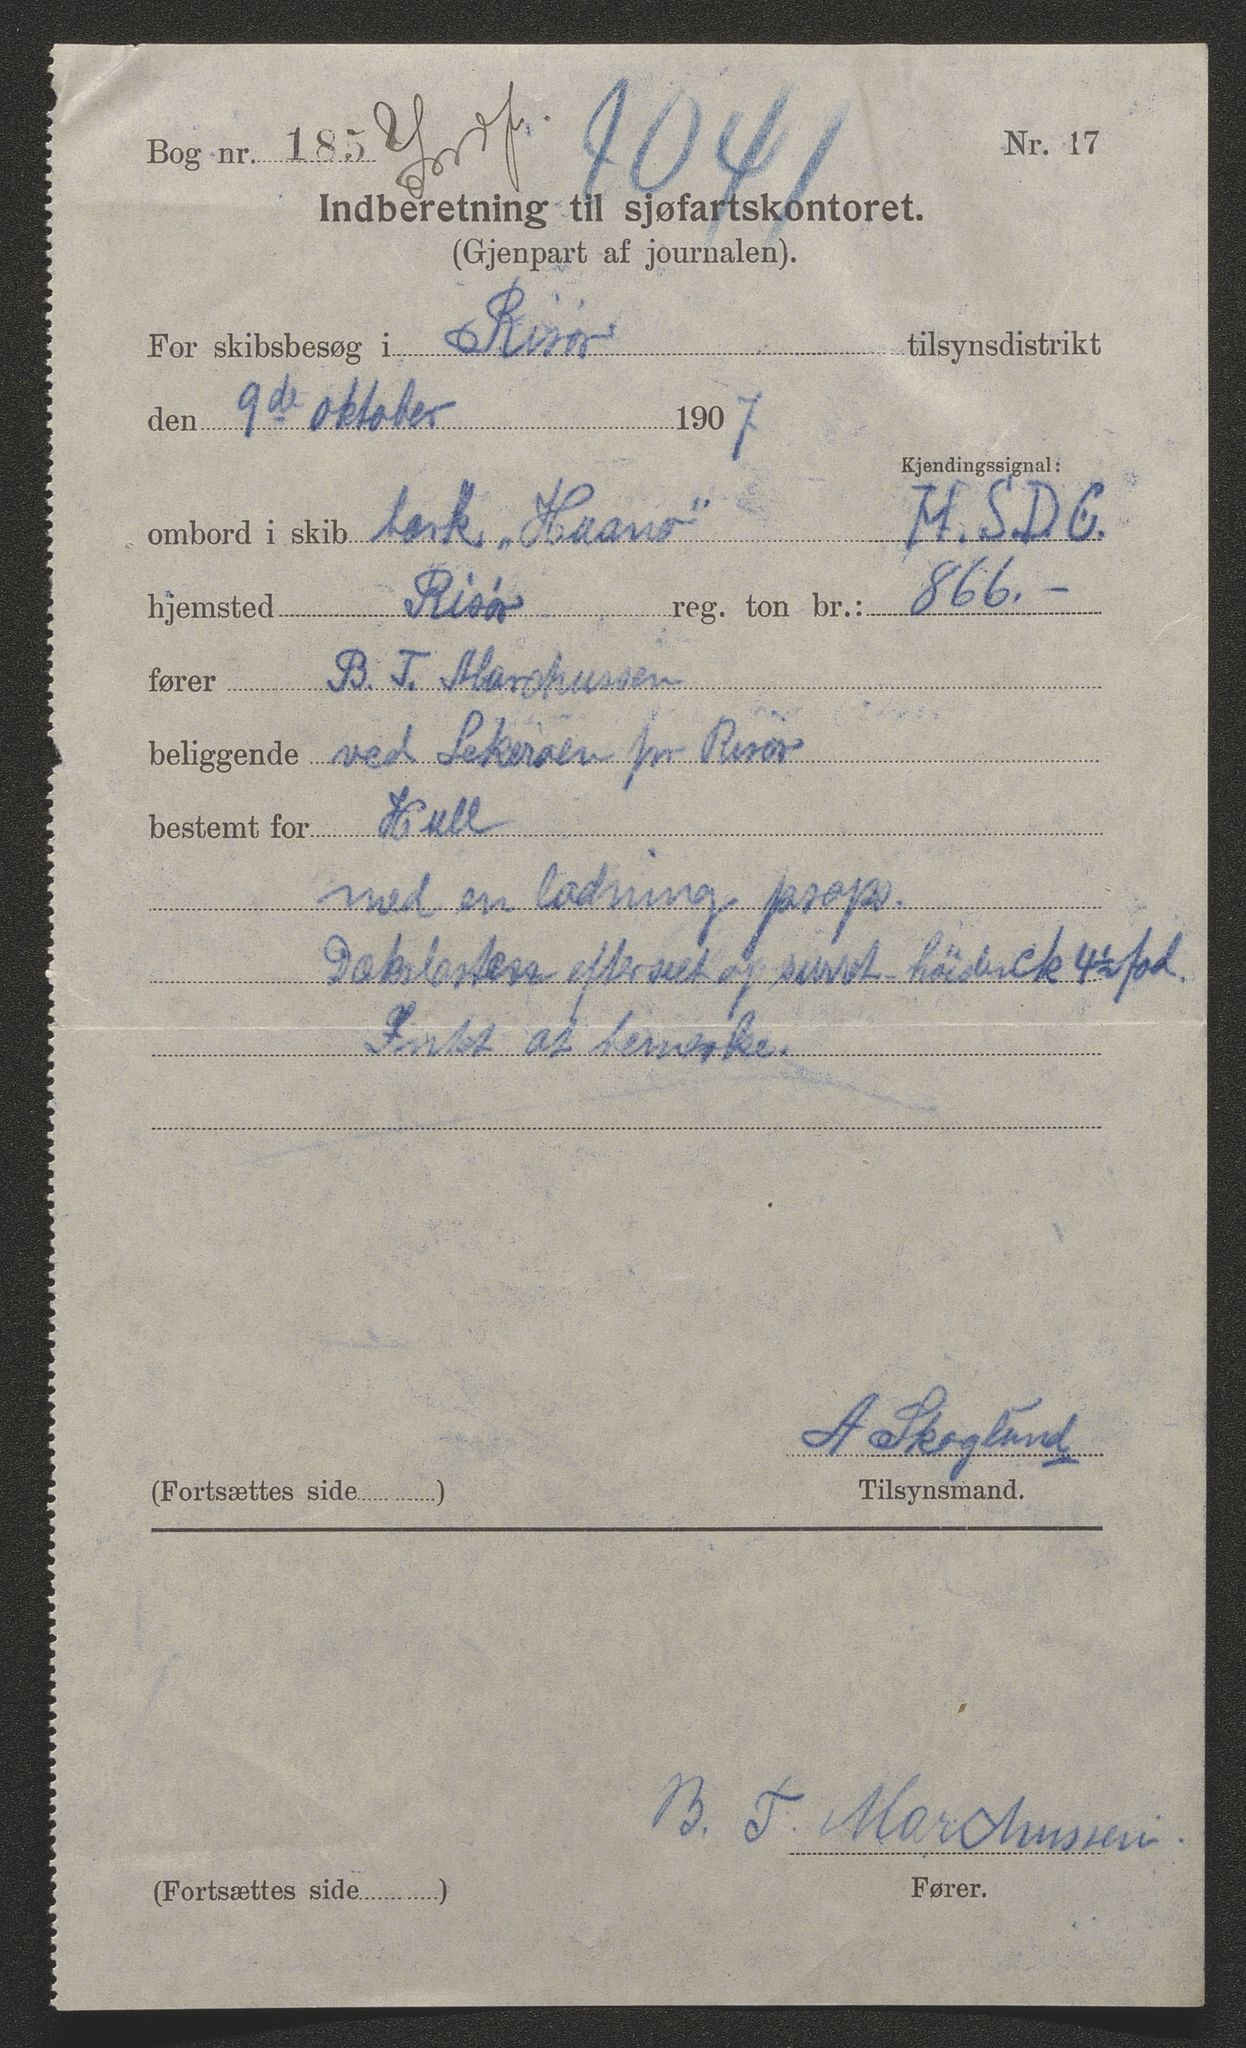 Bog nr. 185 1041 Nr. 17
Indberetning til sjøfartskontoret.
(Gjenpart af journalen).
For skibsbesøg i Risør tilsynsdistrikt
den 9de oktober 1907
Kjendingssignal:
ombord i skib bark „Haanø" M.S.D.C.
hjemsted Risør reg. ton br.: 866.-
fører B. T. Marchussen
beliggende ved Sekeroen pr Risør
bestemt for Hull
med en ladning props.
Dækslasten efterseet og surret høide ck 4½ fod.
Intet at bemerke.
A Skoglund
(Fortsættes side ) Tilsynsmand.
B. T. Marchussen.
(Fortsættes side ) Fører.